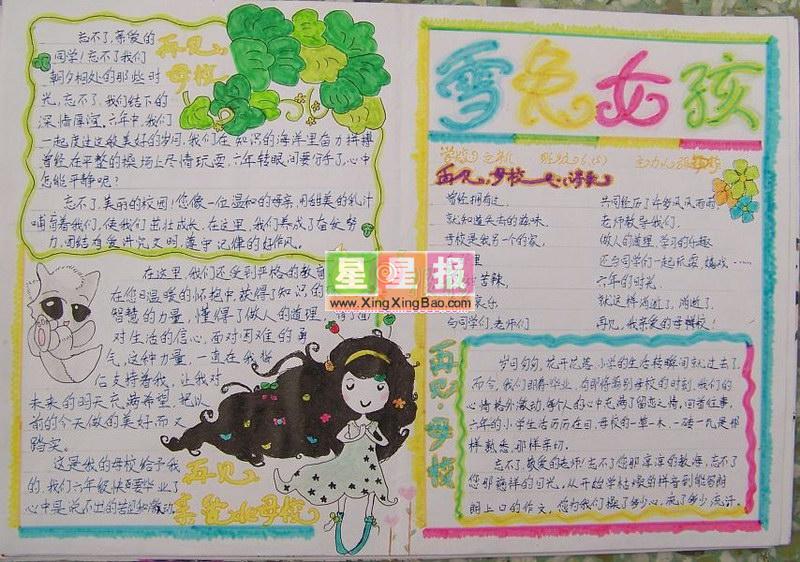 忘不了,亲爱的
同学!忘不了我们
朝夕相处的那些时
光,忘不了,我们结下的
深情厚谊。六年中,我们
一起度过这最美好的岁月,我们在知识的海洋里奋力拼搏
曾经在平整的操场上尽情玩耍,六年转眼间要分手了,心中
怎能平静呢?
忘不了,美丽的校园!您像一位温和的母亲,用甜美的乳汁
哺育着我们,使我们茁壮成长。在这里,我们养成了
团结友爱
再见,
母校
在这里,我们还受到严格的教
在您温暖的怀抱中,获得了知识的
智慧的力量,懂得了做人的道理,
对生活的信心,面对困难的勇
气,这种力量,一直在我
后支持着我,让我对
未来的明天充满希望,把以
前的今天做的美好而又
踏实。
这是我的母校给予我
的,我们六年级快要毕业了
心中是说不出的
再见
亲爱的母校
雪兔女孩
再见,母校
曾经拥有过,
就知道失去的滋味,
母校是我另一个的家,
里
苦辣,
与同学们,老师们
共同经历了6岁风风雨雨
老师教导我们,
做人的道理,学习的乐趣
还与同学们一起玩耍、嬉戏……
六年的时光,
就这样消逝了,消逝了,
再见,我亲爱的母校!
再见·母校
岁月匆匆,花开花落,小学的生活转瞬间就过去了,
而今,我们即将毕业,在即将离别母校的时刻,我们的
心情格外激动,每个人的心中充满了留恋之情,回首往事,
六年的小学生活历历在目,母校的一草一木,一砖一瓦是那
样熟悉,那样亲切。
忘不了,敬爱的老师!忘不了您那谆谆的教诲,忘不了
您那慈祥的目光,从开始学枯燥的拼音到能够朗
朗上口的作文,您为我们操了多少心,流了多少汗。
星星报
www.XingXingBao.com